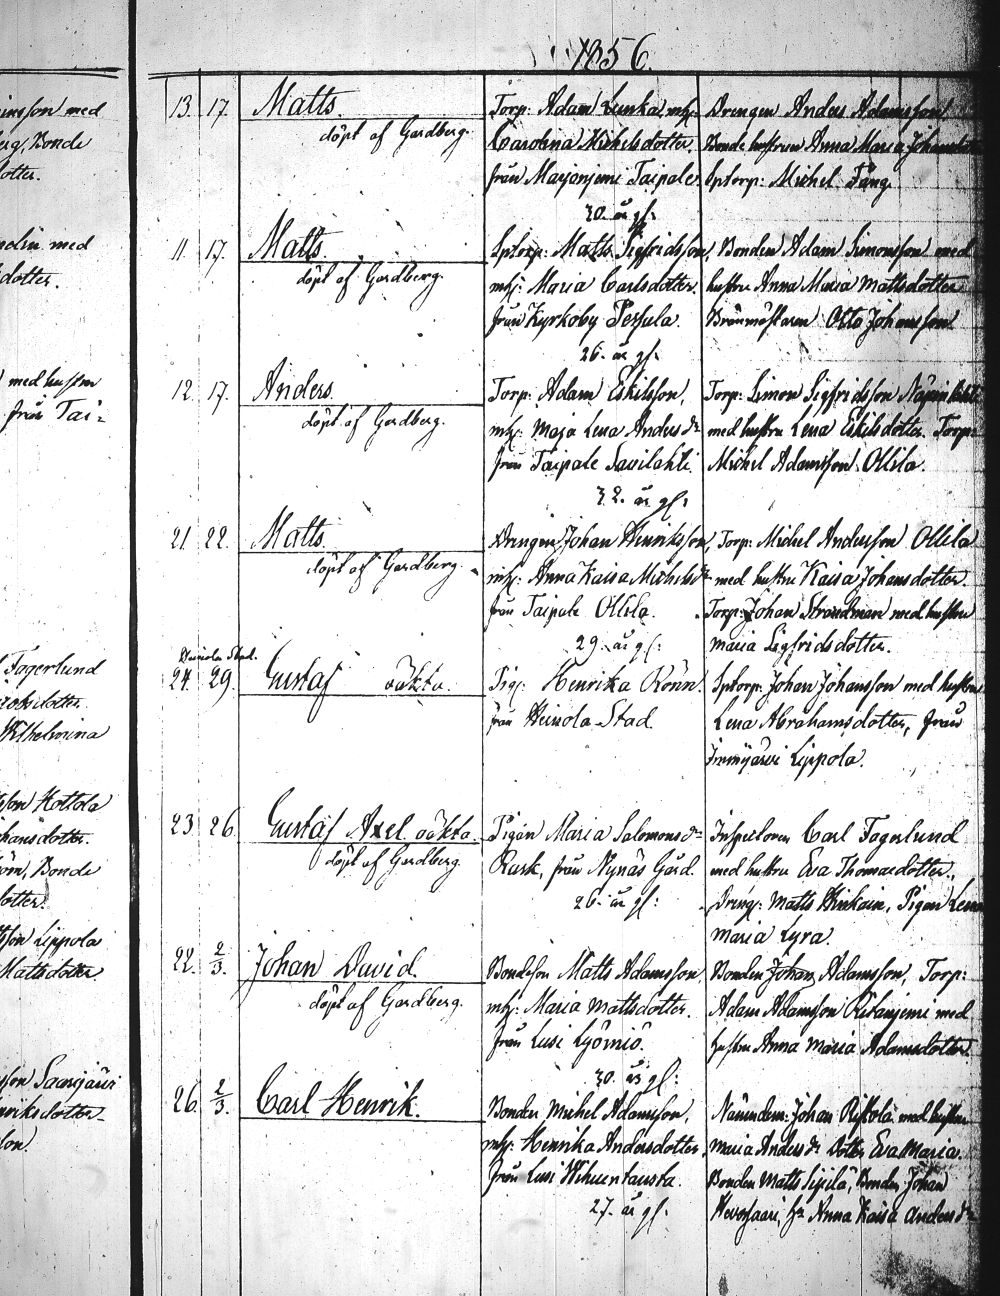 1856.
13. 17. Matts. Torp: Adam Lunka, mhj: Drengen Anders Adamsson,
döpt af Gardberg. Carolina Michelsdotter. Bonde hustrun Anna Maria Johansdotter
från Marjonjemi Taipale. Sptorp: Michel Täng.
30. år gl:
11. 17. Matts. Sptorp: Matts Sigfridsson, Bonden Adam Simonsson med
döpt af Gardberg. mhj: Maria Carlsdotter. hustru Anna Maria Mattsdotter
från Kyrkoby Pessula. Brännmästaren Otto Johansson.
26. år gl.
12. 17. Anders. Torp: Adam Eskilsson, Torp: Simon Sigfridsson
döpt af Gardberg. mhj: Maja Lena Andersdr med hustru Lena Eskilsdotter. Torp:
från Taipale Savilahti. Michel Adamsson Ollila.
32. år gl:
21. 22. Matts. Drengen Johan Henriksson, Torp: Michel Andersson Ollila
döpt af Gardberg. mhj: Anna Kaisa Michelsdr med hustru Kaisa Johansdotter.
från Taipale Ollila. Torp: Johan Strandman med hustru
29. år gl: Maria Sigfridsdotter.
Heinola Stad.
24. 29. Gustaf oäkta. Pig: Henrika Rönn Sptorp: Johan Johansson med hustru
från Heinola Stad. Lena Abrahamsdotter, från
Immijärvi Lippola.
23. 26. Gustaf Axel oäkta. Pigan Maria Salomonsdr Inspectoren Carl Fagerlund
döpt af Gardberg. Rask, från Nynäs Gård. med hustru Eva Thomasdotter,
26. år gl: Dreng: Matts Hinkain, Pigan Lena
Maria Lyra.
22. 2/3. Johan David. Bondeson Matts Adamsson, Bonden Johan Adamsson, Torp:
döpt af Gardberg. mhj: Maria Mattsdotter. Adam Adamsson Riktanjemi med
från Lusi Työmiö. hustru Anna Maria Adamsdotter
30. år gl:
26. 2/3. Carl Henrik. Bonden Michel Adamsson, Nämndem: Johan Ristola med hustru
mhj: Henrika Andersdotter, Maria Andersdr Dotter Eva Maria.
från Lusi Wihuentausta. Bonden Matts Sipilä, Bonden Johan
27. år gl. Hevossaari, hu Anna Kaisa Andersdr
insson med
erg, Bonde
otter.
ndin med
dotter.
med hustru
från Tai=
Fagerlund
Wilhelmina
sson Hottola
hansdotter.
öm, Bonde
otter.
sson Lippola
Mattsdotter
sson Saarijärvi
nriksdotter